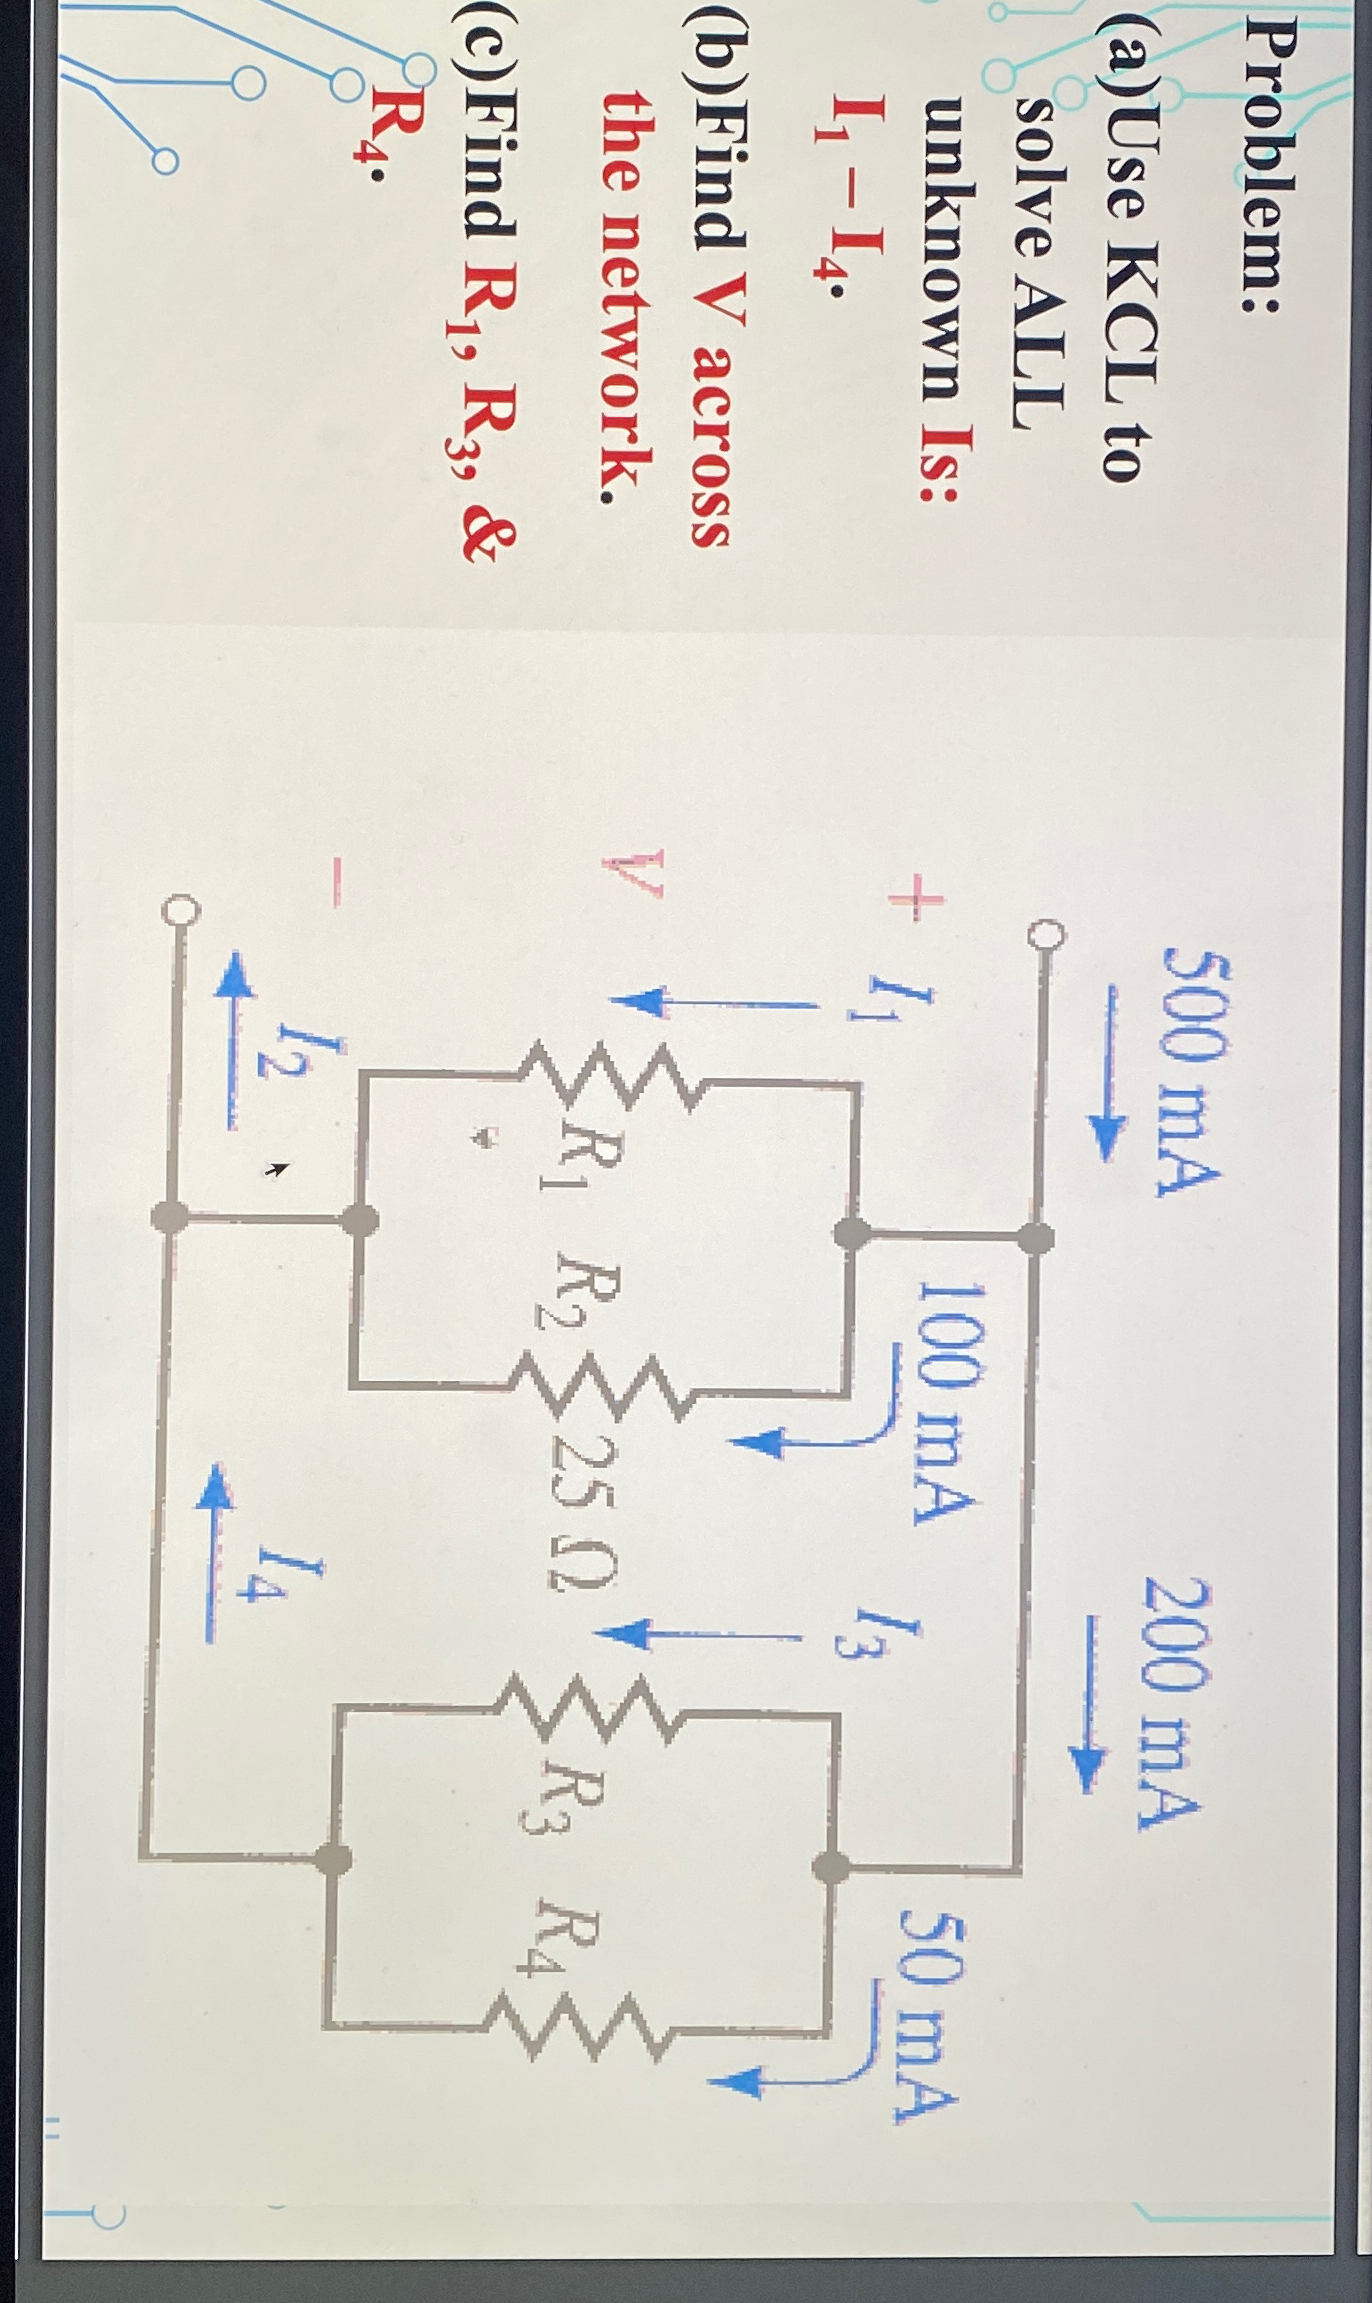 Problem:
(a)Use KCL to
solve ALL
unknown Is:
I₁ – I₄.
(b)Find V across
the network.
(c)Find R₁, R₃, &
R₄.
500 mA
200 mA
+
I₁
100 mA
I₃
50 mA
V
R₁
R₂
25 Ω
R₃
R₄
–
I₂
I₄